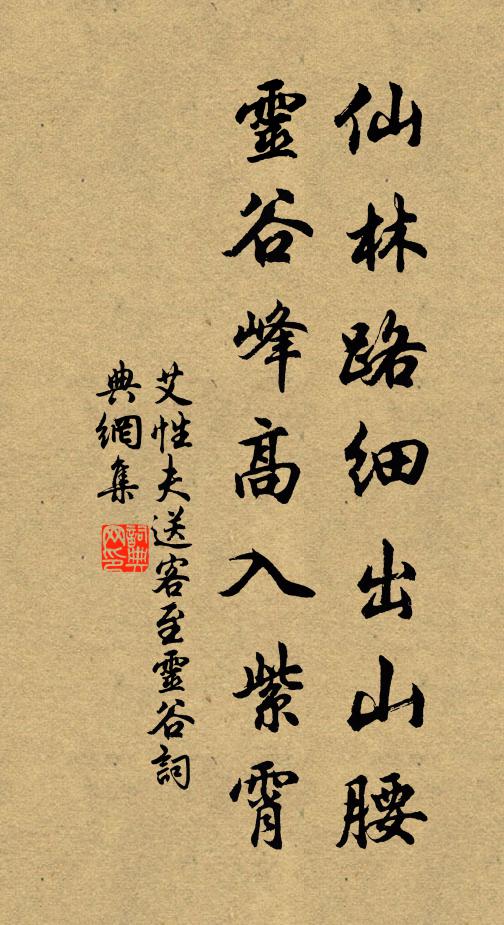 仙林路細出山腰
靈谷峰高入紫霄
艾性夫送客至靈谷詞
典網集
詞典網印